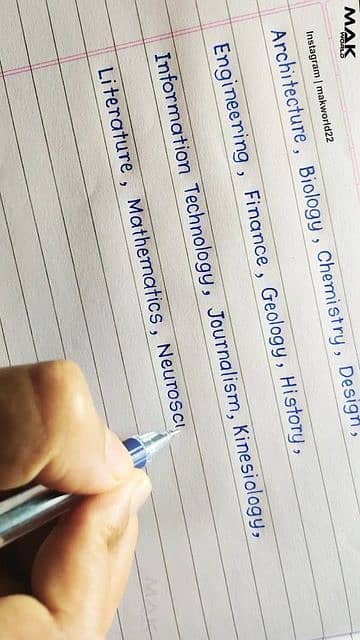 MAK
WORLD
Instagram | makworld22
Architecture, Biology, Chemistry, Design,
Engineering, Finance, Geology, History,
Information Technology, Journalism, Kinesiology,
Literature, Mathematics, Neurosci
MAK